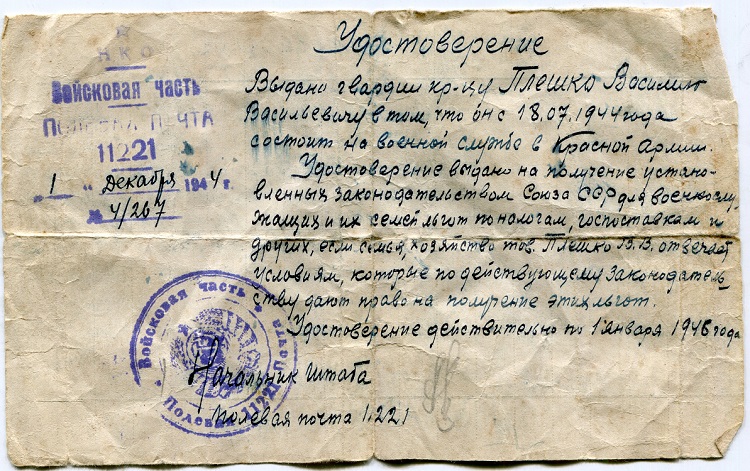 Удостоверение
НКО
Войсковая часть
Полевая почта
11221
"1" Декабря 1944 г.
№ 4/267
Выдано гвардии кр-цу Плешко Василию
Васильевичу в том, что он с 18.07.1944 года
состоит на военной службе в Красной Армии.
Удостоверение выдано на получение устано-
вленных законодательством Союза ССР для военнослу-
жащих и их семей льгот по налогам, госпоставкам и
других, если семья, хозяйство тов. Плешко В.В. отвечает
условиям, которые по действующему законодатель-
ству дают право на получение этих льгот.
Удостоверение действительно по 1 января 1946 года
Войсковая часть Полевая почта 11221
Начальник штаба
Полевая почта 11221